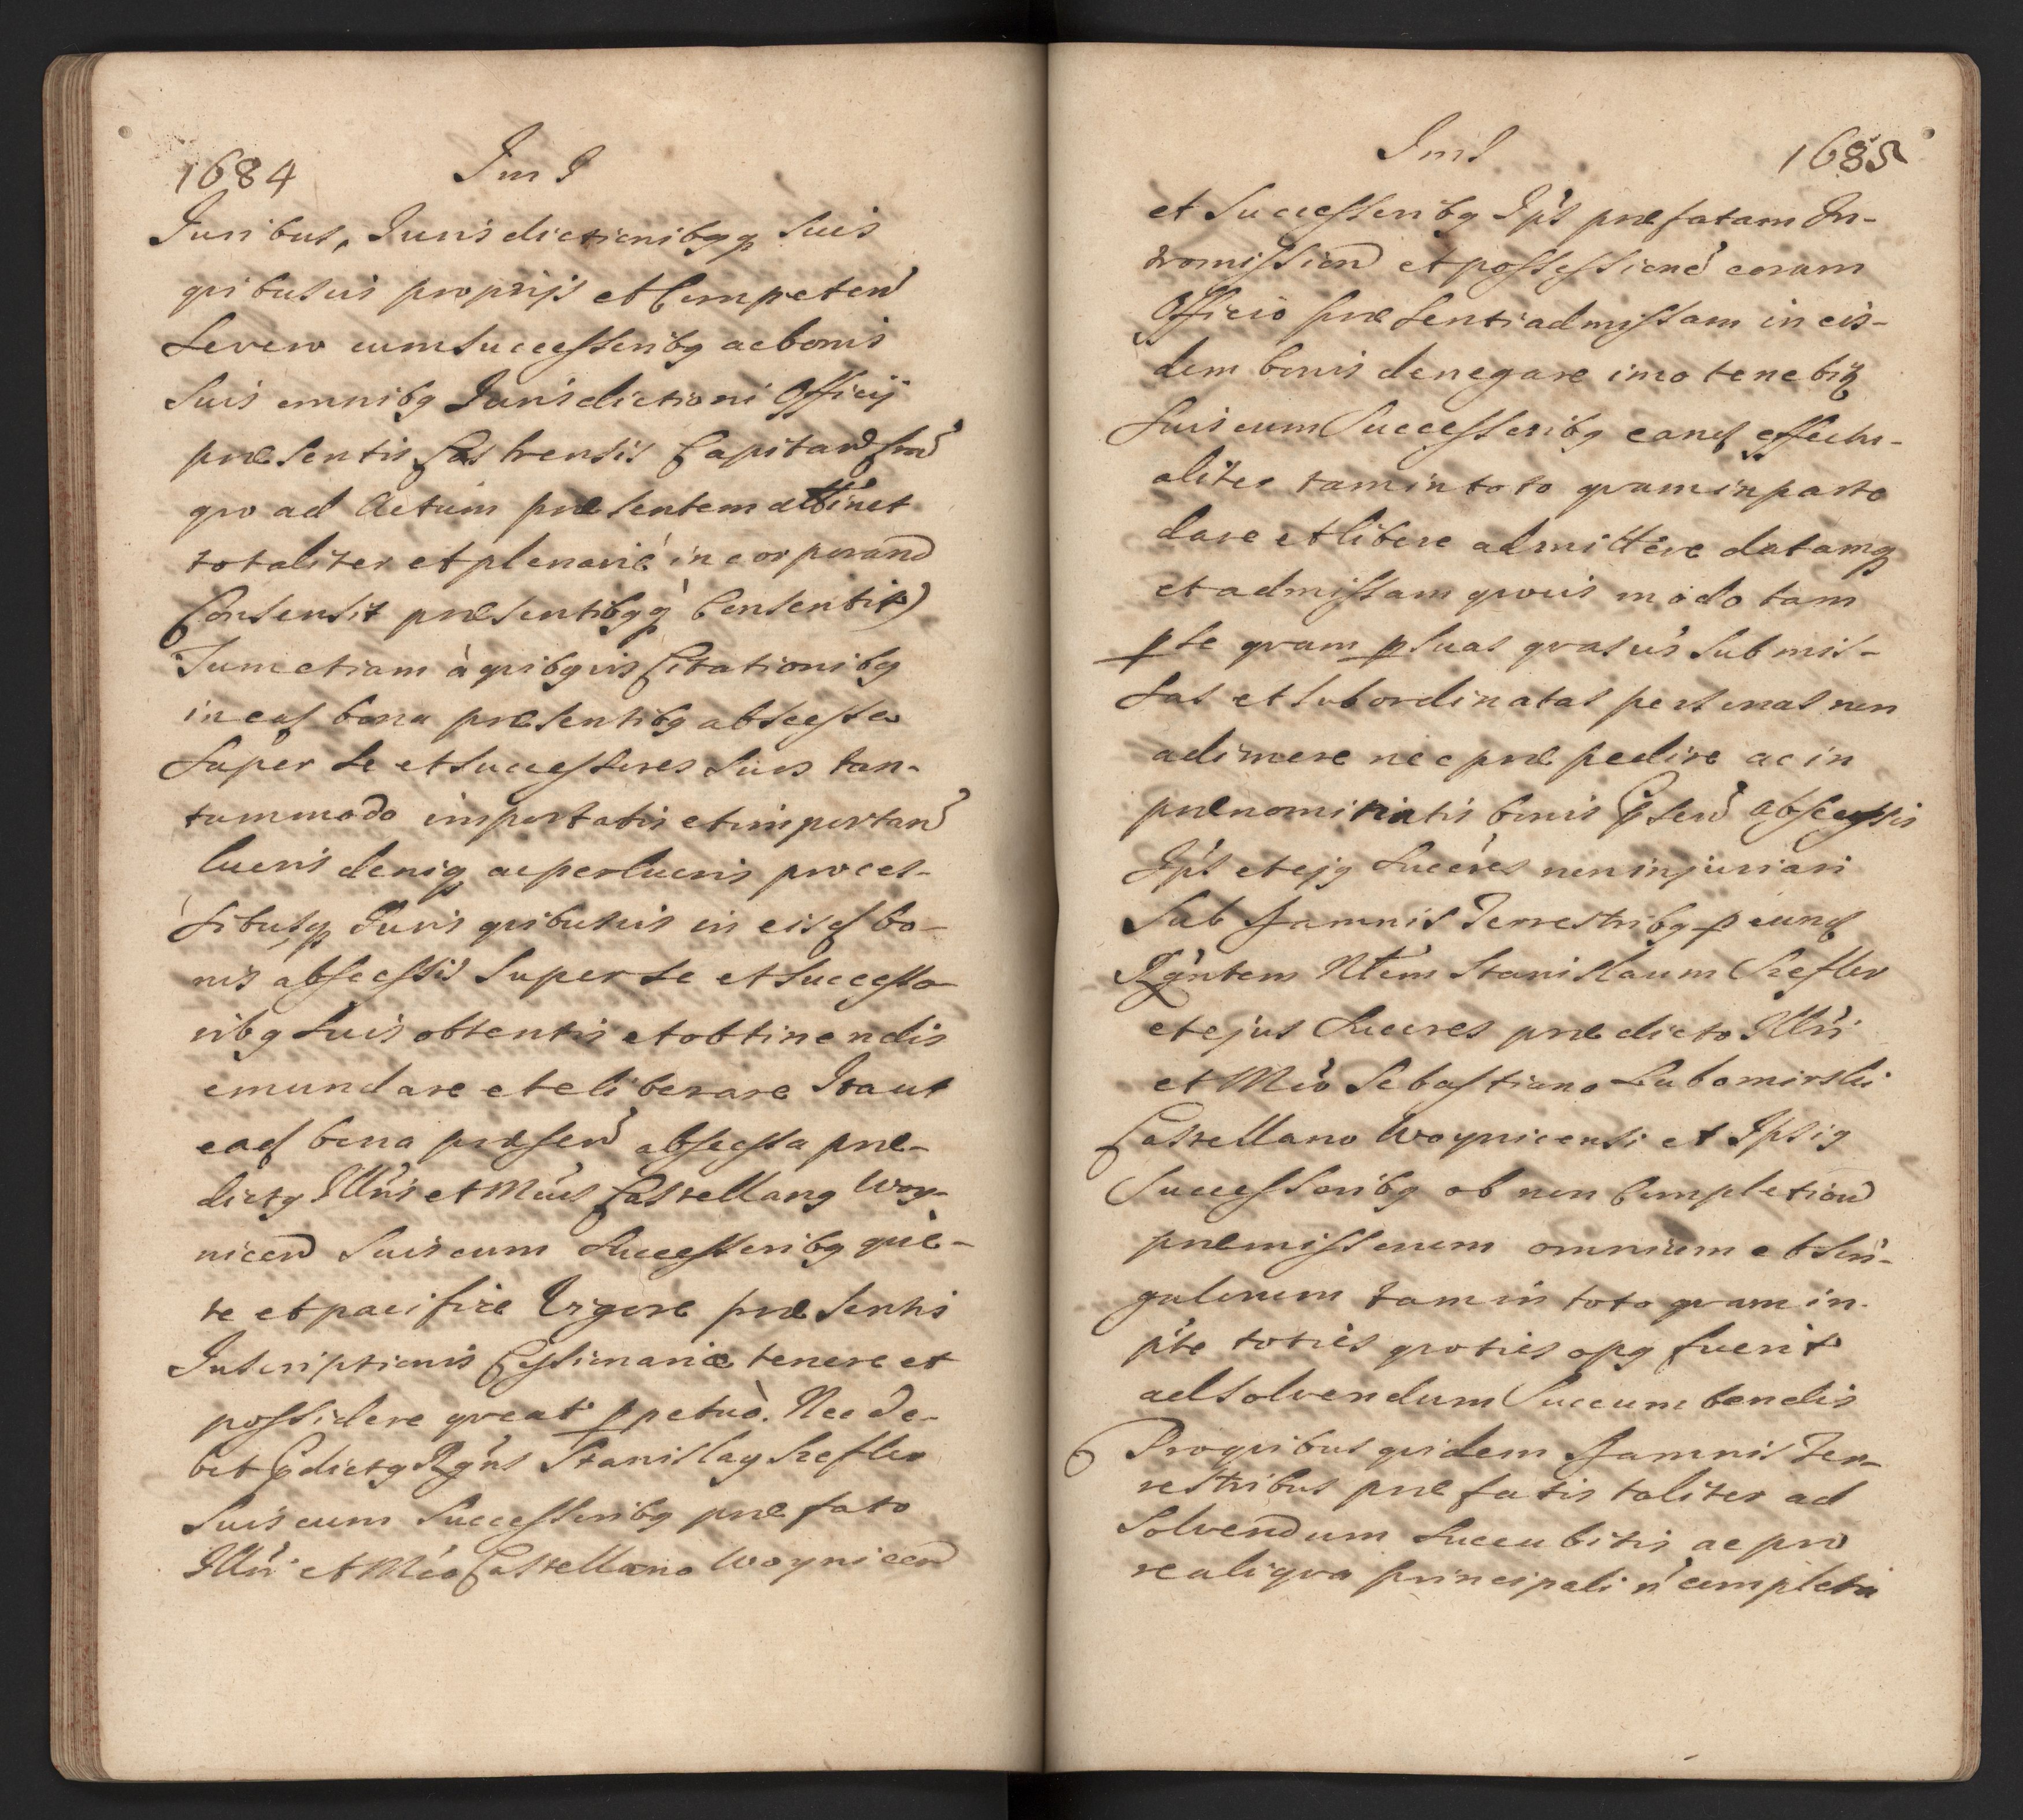 1684 Im I
Juribus, Jurisdictionibqq suis
quibusvis proprijs et Competen
devero cum successoribq ac bonis
suis omnibq Jurisdictioni Officij
præsentis Castrensis Capitan
quo ad Actum præsentem attinet
totaliter et plenarié incorporand
Consensit præsentibqq Consentit)
Tum etiam à quibqvis Citationibq
in ead bona præsentibq abscessa
super se et successores suos tan-
tummodo importatis et importan
lucris deniq ac perlucris proces-
sibusq Juris quibusvis in eisd bo-
nis abscessis super se et successo-
ribq suis obtentis et obtinendis
emundare et eliberare Ita ut
ead bona præsen abscessa præ-
dictq Illris et Mcus Castellanq Woy-
nicen suis cum successoribq quiè-
te et pacifice Vigore præsentis
Inscriptionis Cessionariæ tenere et
possidere queat ppetuò. Nec de-
bet pdictq Rgns Stanislaq Szefler
suis cum successoribq præfato
Illri et Mco Castellano Woynicen
Im I 1685
et Successoribq Ips præfatam In-
tromission et possessioné coram
Officio præsenti admissam in eis-
dem bonis denegare imo tenebit
suis cum Successoribq eand effectu-
aliter tam in toto quam in parte
dare et libere admittere datamq
et admissam quovis modo tam
p se quam p suas quasvis submis-
sas et subordinatas personas non
adimere nec præpedire ac in
prænominatis bonis psen abscessis
Ips et ejq succres non injuriari
sub damnis Terrestribq p eund
Rgntem Nlem Stanislaum Szefler
et ejus succres prædicto Illri
et Mco Sebastiano Lubomirski
Castellano Woynicensi et Ipsiq
Successoribq ob non Completion
præmissorum omnium et sin-
gulorum tam in toto quam in
pte toties quoties opq fuerit
ad solvendum Succumbendis
Pro quibus quidem damnis Ter-
restribus præfatis taliter ad
solvendum succubitis ac pro
re aliqua principali ń completa